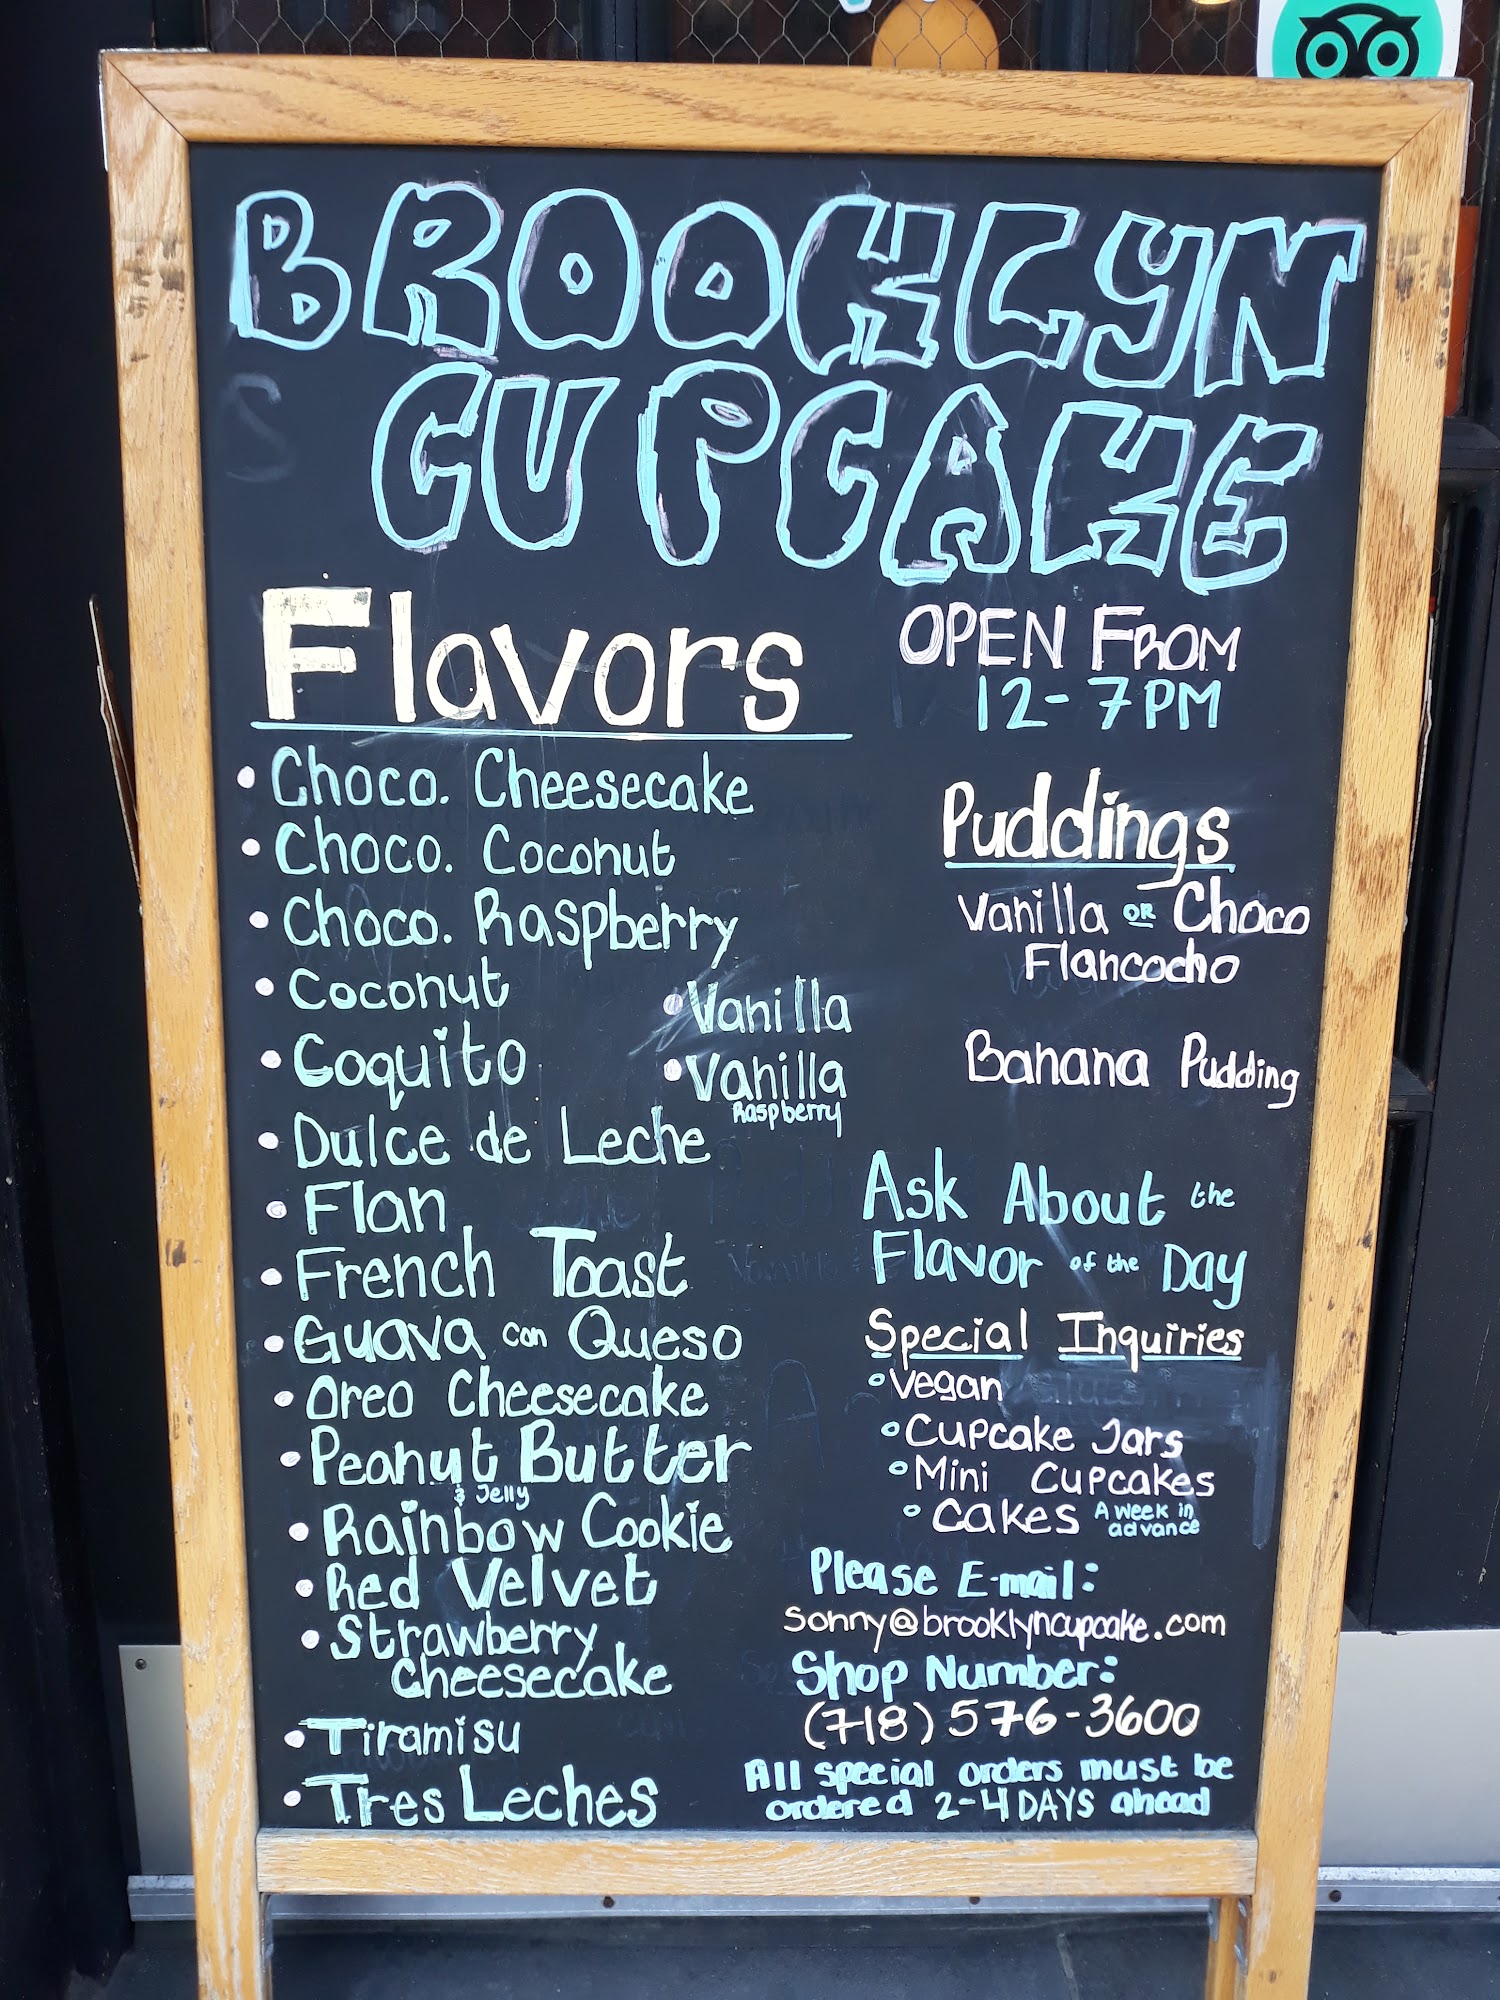 BROOKLYN
CUPCAKE
Flavors
• Choco. Cheesecake
• Choco. Coconut
• Choco. Raspberry
• Coconut
• Coquito
• Dulce de Leche
• Flan
• French Toast
• Guava con Queso
• Oreo Cheesecake
• Peanut Butter
& Jelly
• Rainbow Cookie
• Red Velvet
• Strawberry
Cheesecake
• Tiramisu
• Tres Leches
• Vanilla
• Vanilla
Raspberry
OPEN FROM
12-7PM
Puddings
Vanilla OR Choco
Flancocho
Banana Pudding
Ask About the
Flavor of the Day
Special Inquiries
• Vegan
• Cupcake Jars
• Mini Cupcakes
• Cakes A week in
advance
Please E-mail:
sonny@brooklyncupcake.com
Shop Number:
(718) 576-3600
All special orders must be
ordered 2-4 DAYS ahead